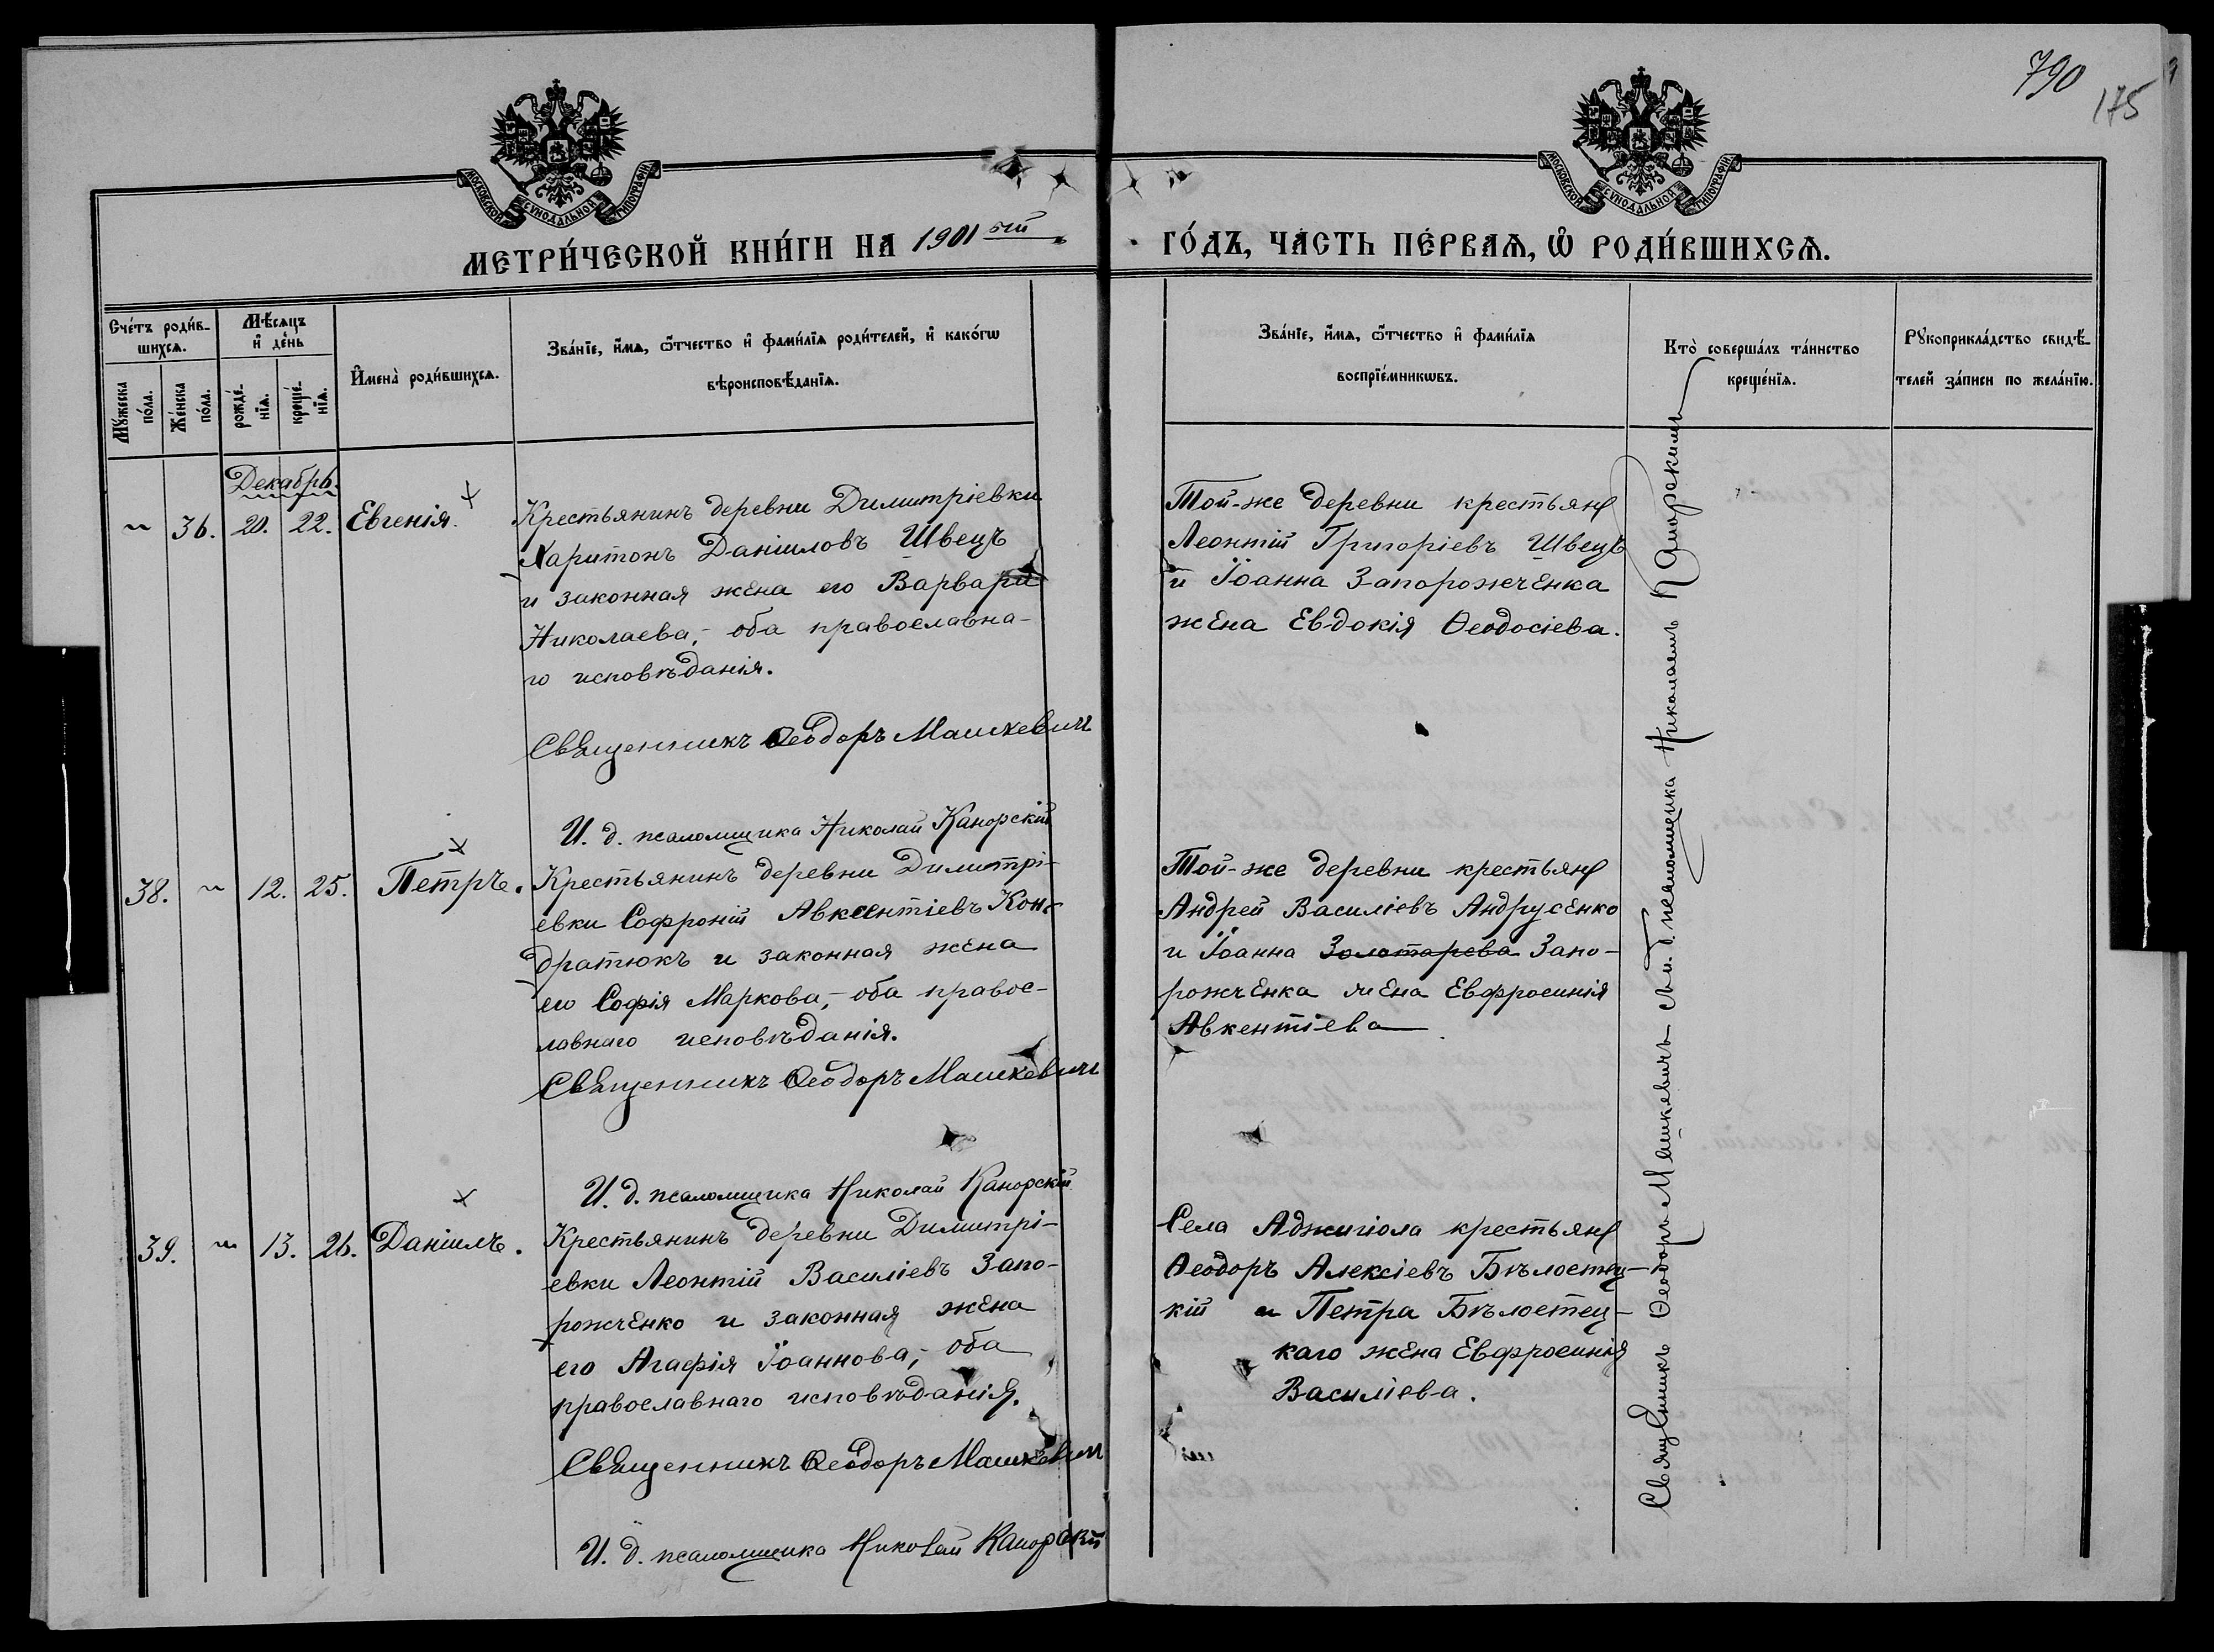 790
175
МОСКОВСКОЙ СѴНОДАЛЬНОЙ ТИПОГРАФІИ
МОСКОВСКОЙ СѴНОДАЛЬНОЙ ТИПОГРАФІИ
МЕТРИ́ЧЕСКОЙ КНИ́ГИ НА 1901 ый
ГО́ДЪ, ЧА́СТЬ ПЕ́РВАѦ, Ѡ҆ РОДИ́ВШИХСѦ.
Сче́тъ роди́в-
шихсѧ.
Мѣ́сѧцъ
и҆ де́нь
Мꙋ́жеска
по́ла.
Же́нска
по́ла.
рожде́-
нїѧ.
креще́-
нїѧ.
И҆мена̀ роди́вшихсѧ.
Зва́нїе, и҆́мѧ, ѻ҆́тчество и҆ фами́лїѧ роди́телей, и҆ како́гѡ
вѣроисповѣ́данїѧ.
Зва́нїе, и҆́мѧ, ѻ҆́тчество и҆ фами́лїѧ
воспрїе́мникѡвъ.
Кто̀ соверша́лъ та́инство
креще́нїѧ.
Рꙋкоприкла́дство свидѣ́-
телей за́писи по жела́нїю.
Декабрь.
~ 36. 20. 22. Евгенія.
Крестьянинъ деревни Димитріевки
Харитонъ Даніиловъ Швецъ
и законная жена его Варвара
Николаева,- оба православна-
го исповѣданія.
Священникъ Ѳеодоръ Машкевичъ
И. д. псаломщика Николай Канорскій
Той-же деревни крестьяне
Леонтій Григоріевъ Швецъ
и Іоанна Запорожченка
жена Евдокія Ѳеодосіева.
38. ~ 12. 25. Петръ.
Крестьянинъ деревни Димитрі-
евки Софроній Авксентіевъ Кон-
дратюкъ и законная жена
его Софія Маркова,- оба правос-
лавнаго исповѣданія.
Священникъ Ѳеодоръ Машкевичъ
И. д. псаломщика Николай Канорскій
Той-же деревни крестьяне
Андрей Василіевъ Андрусенко
и Іоанна Золотарева Запо-
рожченка жена Евфросинія
Авкентіева
39. ~ 13. 26. Даніилъ.
Крестьянинъ деревни Димитрі-
евки Леонтій Василіевъ Запо-
рожченко и законная жена
его Агафія Іоаннова,- оба
православнаго исповѣданія.
Священникъ Ѳеодоръ Машкевичъ
И. д. псаломщика Николай Канорскій
Села Аджигіола крестьяне
Ѳеодоръ Алексіевъ Бѣлостец-
кій и Петра Бѣлостец-
каго жена Евфросинія
Василіева.
Священникъ Ѳеодоръ Машкевичъ съ и. д. псаломщика Николаемъ Канорскимъ